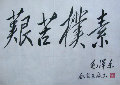 艰苦樸素
毛澤東